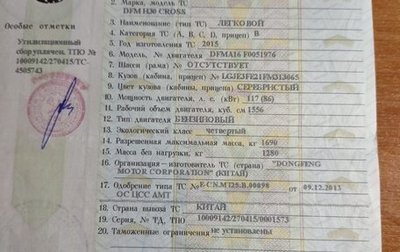 Особые отметки
Утилизационный
сбор уплачен. ТПО №
10009142/270415/ТС-
4505743
2. Марка, модель ТС
DFM H30 CROSS
3. Наименование (тип ТС) ЛЕГКОВОЙ
4. Категория ТС (А, В, С, D, прицеп) В
5. Год изготовления ТС 2015
6. Модель, № двигателя DFMA16 F0051976
7. Шасси (рама) № ОТСУТСТВУЕТ
8. Кузов (кабина, прицеп) № LGJE3FE21FM313065
9. Цвет кузова (кабины, прицепа) СЕРЕБРИСТЫЙ
10. Мощность двигателя, л. с. (кВт) 117 (86)
11. Рабочий объем двигателя, куб. см 1556
12. Тип двигателя БЕНЗИНОВЫЙ
13. Экологический класс четвертый
14. Разрешенная максимальная масса, кг 1690
15. Масса без нагрузки, кг 1280
16. Организация-изготовитель ТС (страна) "DONGFENG
MOTOR CORPORATION" (КИТАЙ)
17. Одобрение типа ТС № E-CN.MT25.B.00898 от 09.12.2013
ОС ЦСС АМТ
18. Страна вывоза ТС КИТАЙ
19. Серия, № ТД, ТПО 10009142/270415/0001573
20. Таможенные ограничения не установлены